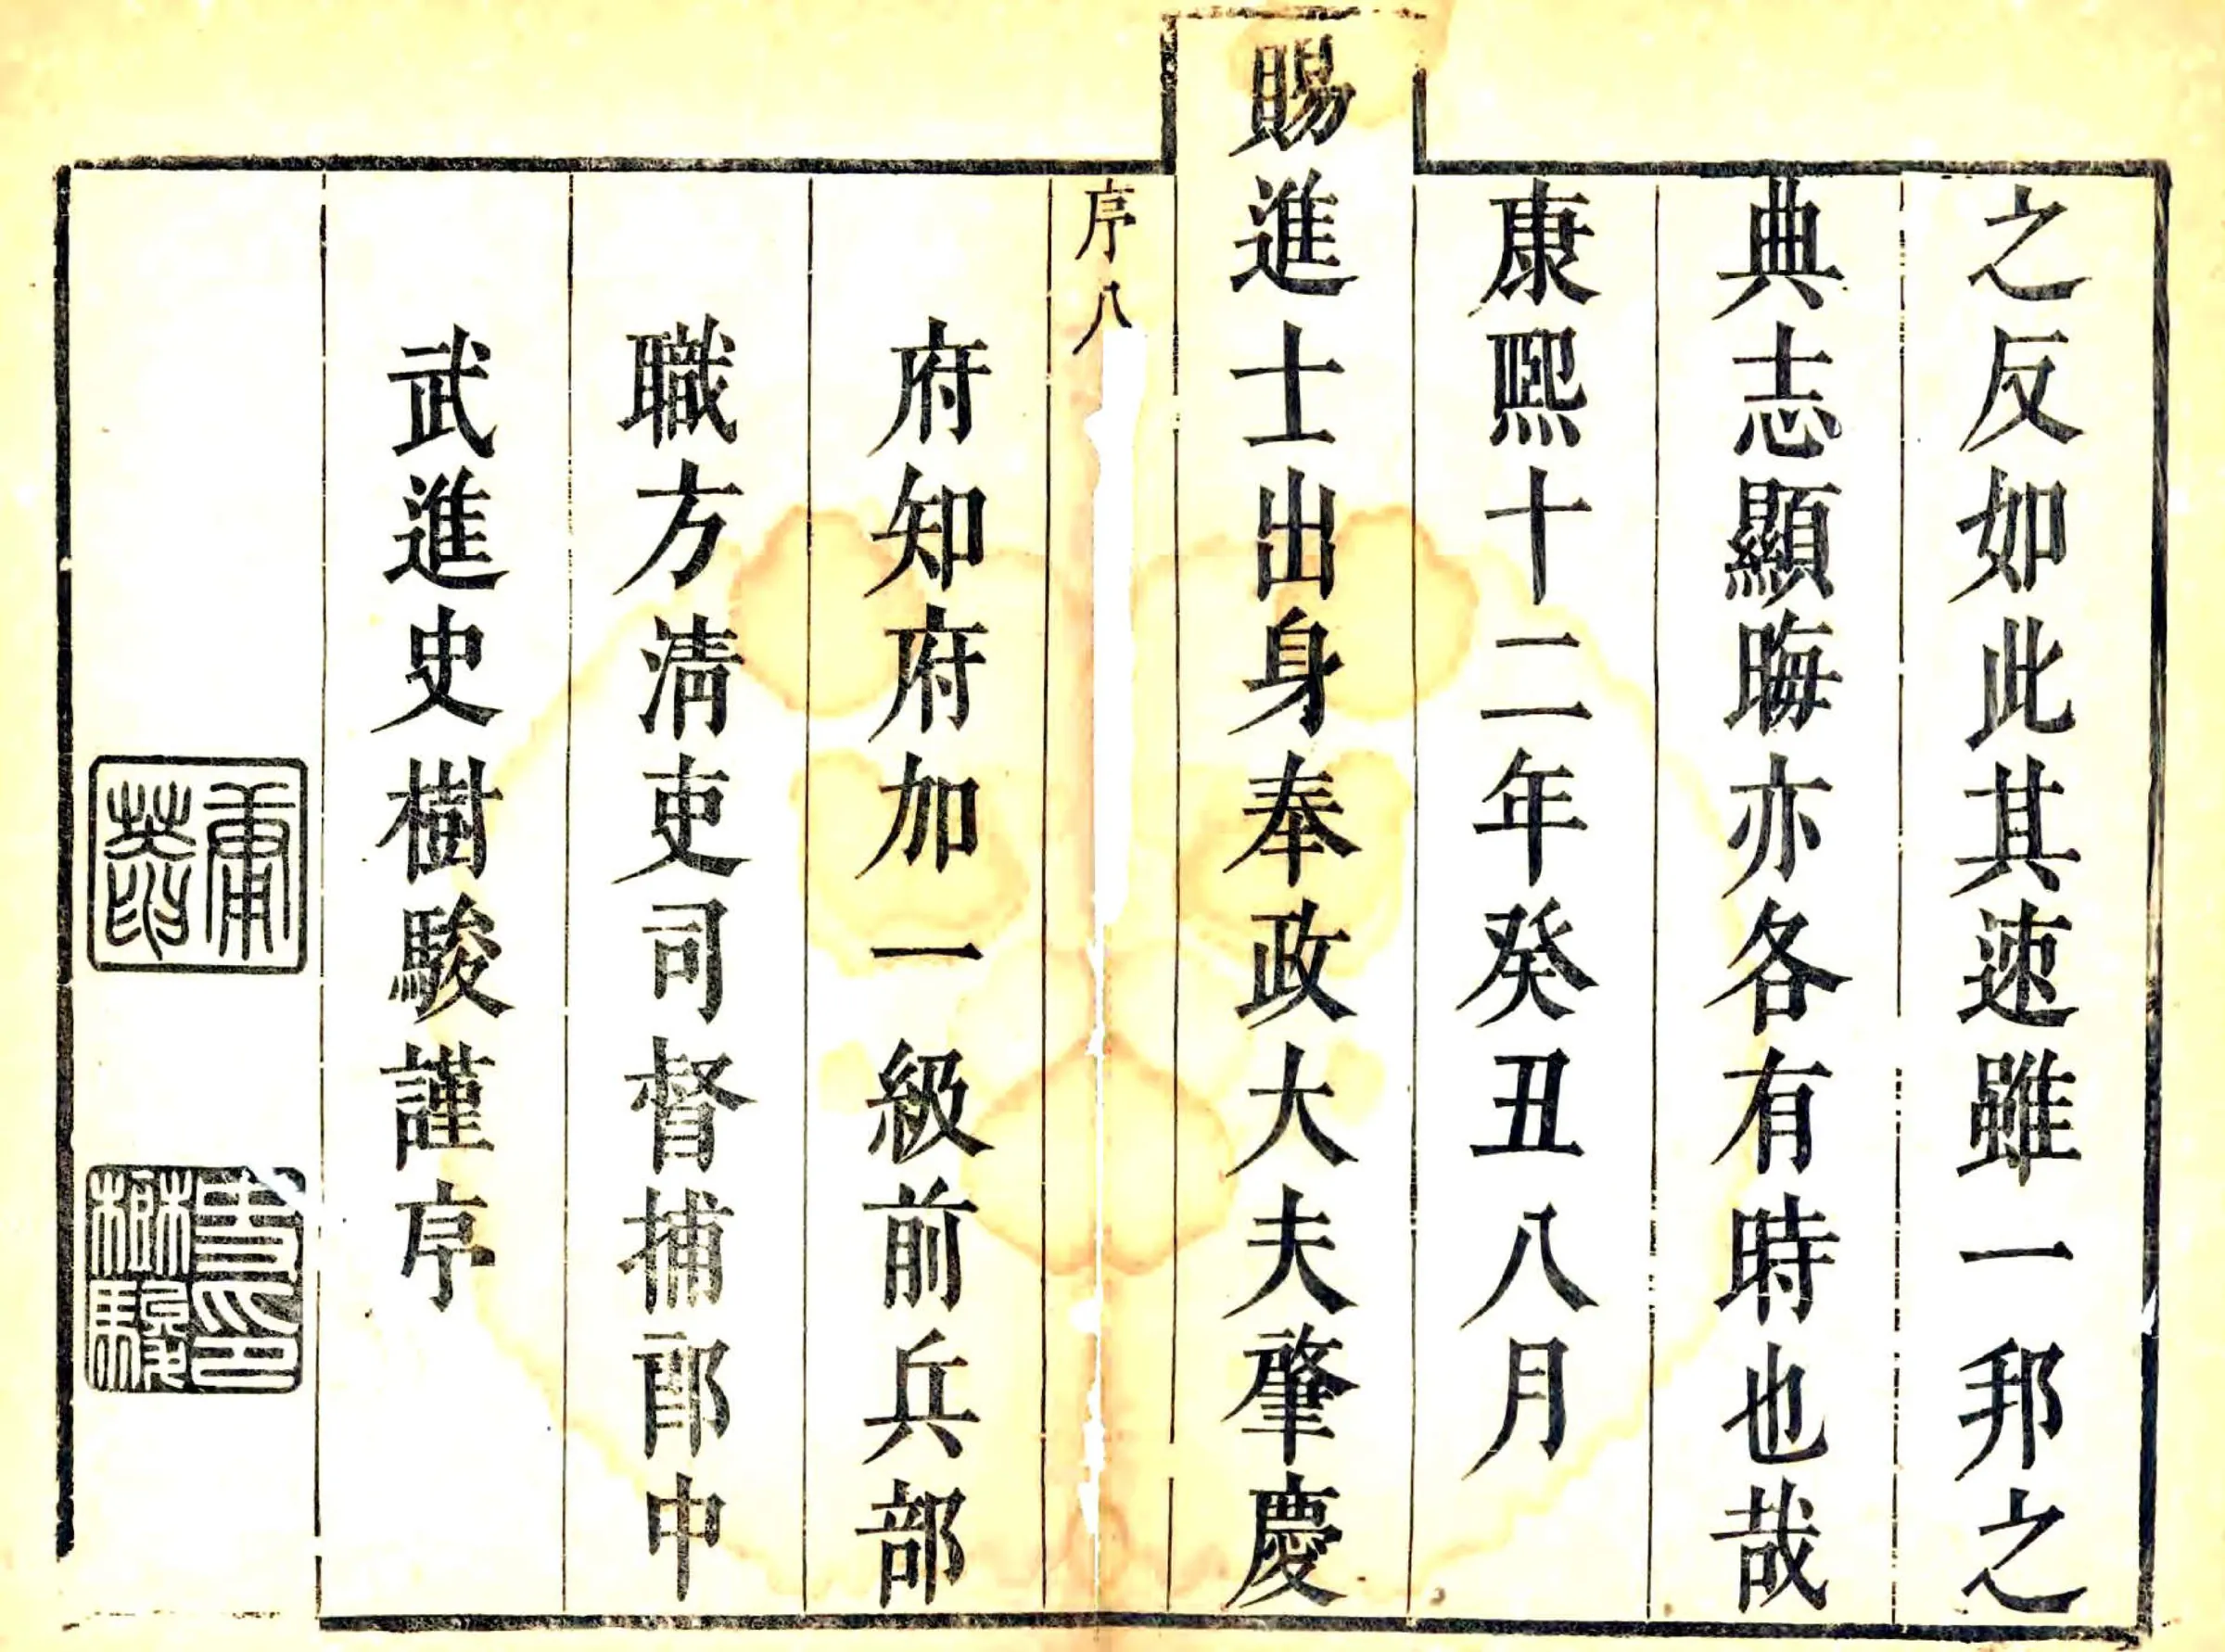 之反如此其速雖一邦之
典志顯晦亦各有時也哉
康熙十二年癸丑八月
賜進士出身奉政大夫肇慶
序八
府知府加一級前兵部
職方清吏司督捕郎中
武進史樹駿謹序
史印樹駿